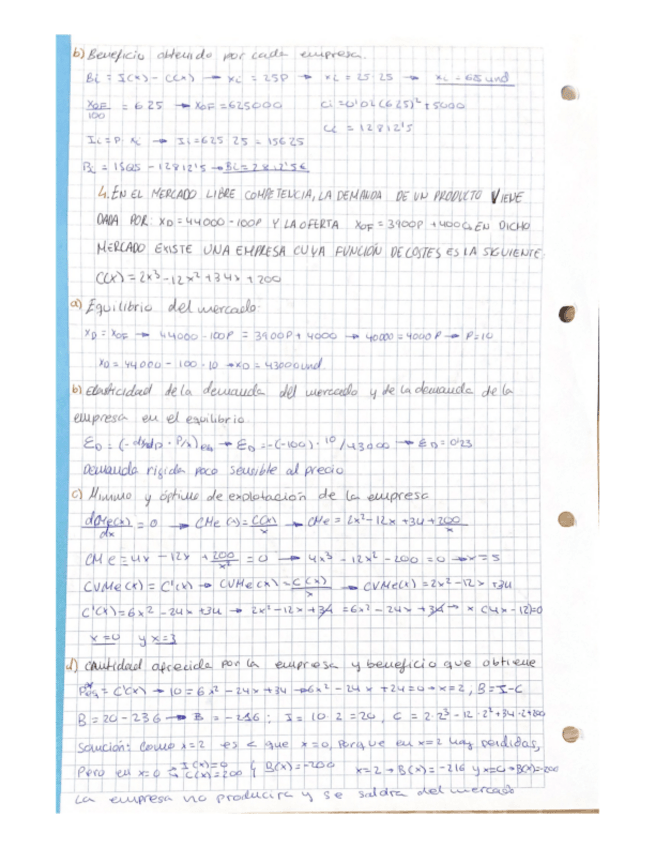 b) Beneficio obtenido por cada empresa.
Bi = I(x) - C(x) → xi = 25P → xi = 25·25 → xi = 625 und
xOF/100 = 625 → xOF = 625000 Ci = 0'02(625)² + 5000
Ci = 12812'5
Ii = P·xi → Ii = 625·25 = 15625
Bi = 15625 - 12812'5 → Bi = 2812'5€
4. EN EL MERCADO LIBRE COMPETENCIA, LA DEMANDA DE UN PRODUCTO VIENE
DADA POR: XD = 44000 - 100P Y LA OFERTA XOF = 3900P + 4000. EN DICHO
MERCADO EXISTE UNA EMPRESA CUYA FUNCIÓN DE COSTES ES LA SIGUIENTE:
C(X) = 2x³ - 12x² + 34x + 200
a) Equilibrio del mercado.
XD = XOF → 44000 - 100P = 3900P + 4000 → 40000 = 4000P → P = 10
XD = 44000 - 100·10 → XD = 43000 und
b) Elasticidad de la demanda del mercado y de la demanda de la
empresa en el equilibrio.
ED = (- dxd/dp · P/x) → ED = -(-100)·10/43000 → ED = 0'23
Demanda rígida poco sensible al precio
c) Mínimo y óptimo de explotación de la empresa
dCMe(x)/dx = 0 → CMe(x) = C(x)/x → CMe = 2x² - 12x + 34 + 200/x
CMe = 4x - 12x + 200/x² = 0 → 4x³ - 12x² - 200 = 0 → x = 5
CVMe(x) = C'(x) → CVMe(x) = C(x)/x → CVMe(x) = 2x² - 12x + 34
C'(x) = 6x² - 24x + 34 → 2x² - 12x + 34 = 6x² - 24x + 34 → x(4x - 12) = 0
x = 0 y x = 3
d) Cantidad ofrecida por la empresa y beneficio que obtiene
= C'(x) → 10 = 6x² - 24x + 34 → 6x² - 24x + 24 = 0 → x = 2, B = I - C
B = 20 - 236 → B = -216; I = 10·2 = 20, C = 2·2³ - 12·2² + 34·2 + 200
Solución: Como x = 2 es < que x = 0, porque en x = 2 hay pérdidas,
Pero en x = 0 I(x) = 0 C(x) = 200 { B(x) = -200 x = 2 → B(x) = -216 y x = 0 → B(x) = -200
La empresa no producirá y se saldrá del mercado